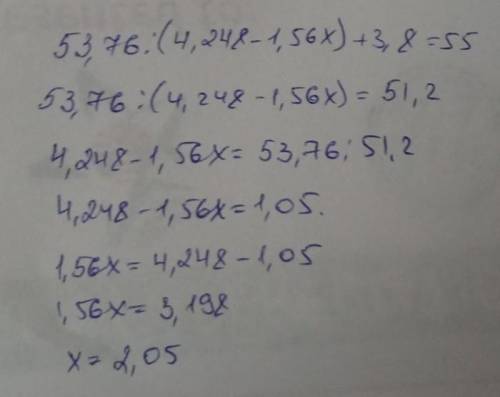 53,76:(4,248-1,56x)+3,8=55
53,76:(4,248-1,56x)=51,2
4,248-1,56x=53,76:51,2
4,248-1,56x=1,05.
1,56x=4,248-1,05
1,56x=3,198
x=2,05